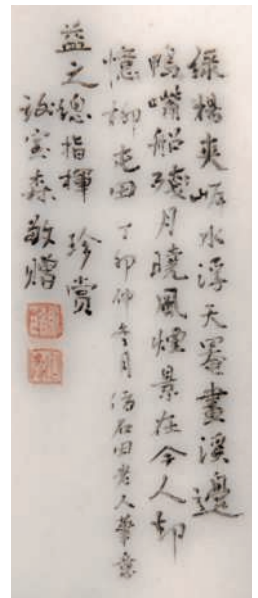 綠楊夾岸水浮天罨畫溪邊
鴨嘴船殘月曉風煙景在令人却
憶柳屯田 丁卯仲冬月仿石田老人筆意
益之總指揮 珍賞
森敬贈